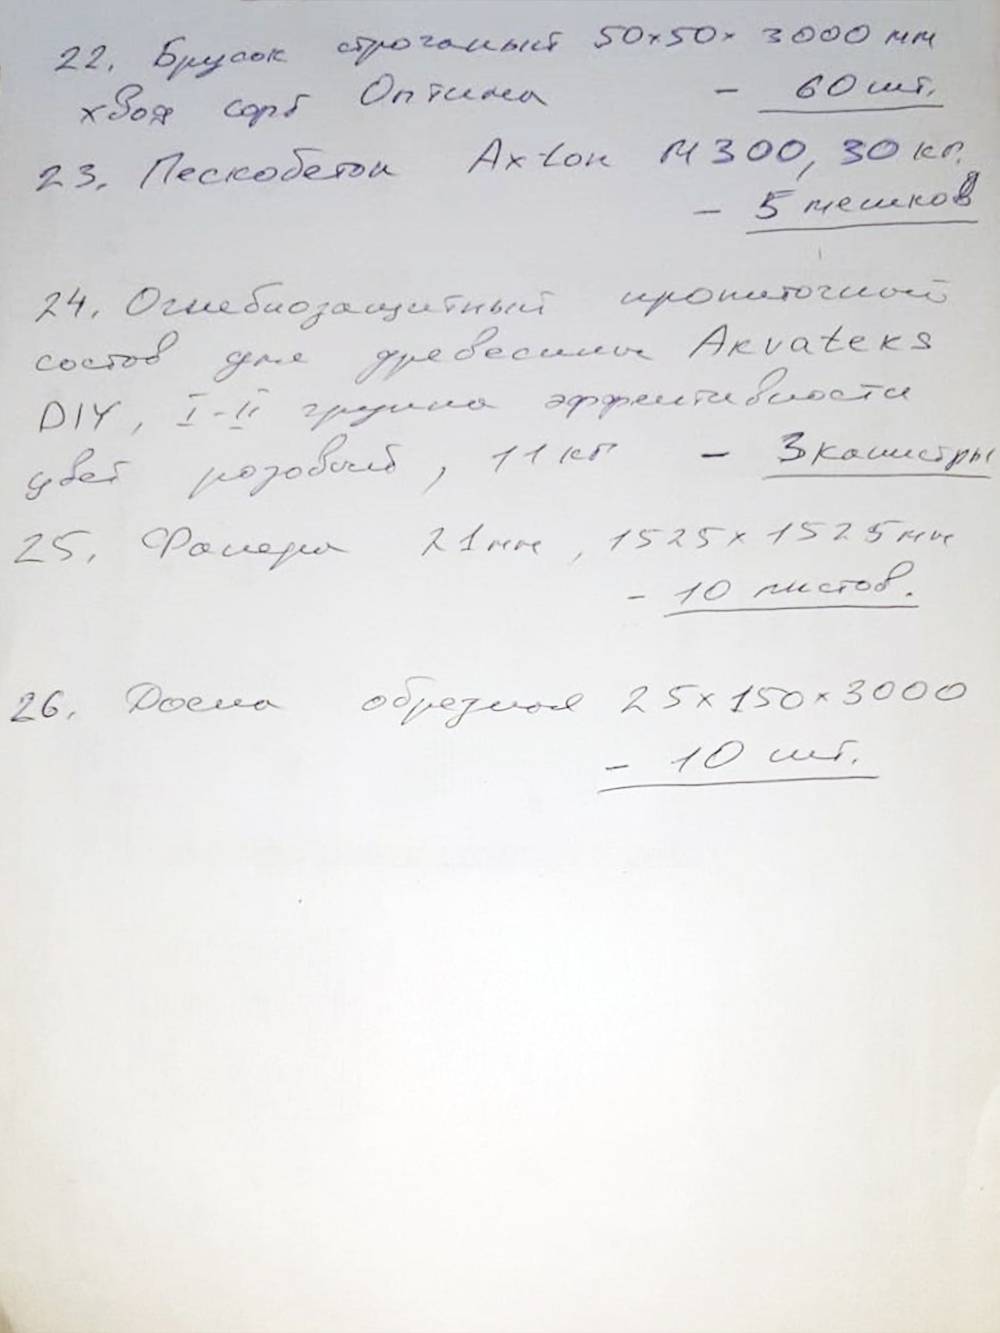 22. Брусок строганный 50х50х3000 мм
хвоя сорт Оптима - 60 шт.
23. Пескобетон Axton М300, 30 кг.
- 5 мешков
24. Огнебиозащитный пропиточный
состав для древесины Akvateks
DIY, I-II группа эффективности
цвет розовый, 11 кг - 3 канистры
25. Фанера 21мм, 1525х1525мм
- 10 листов.
26. Доска обрезная 25х150х3000
- 10 шт.